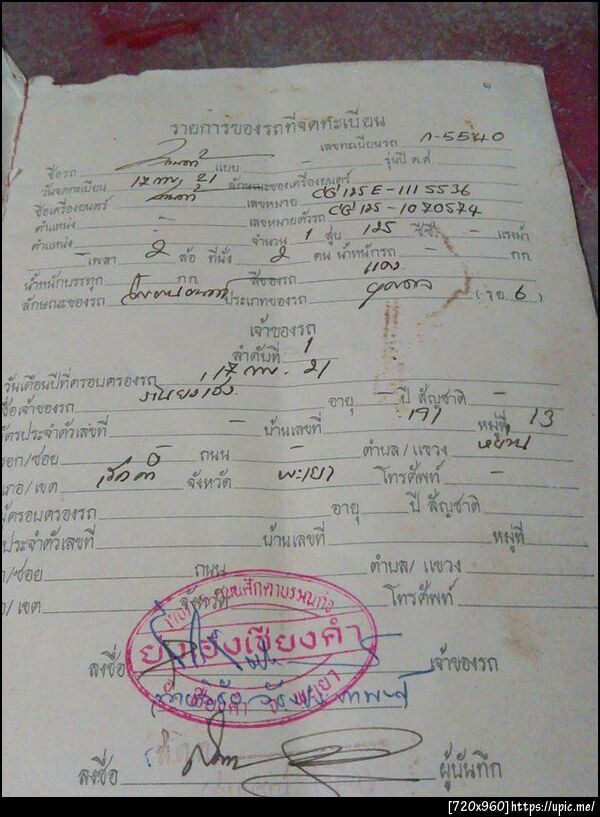 ๑
รายการของรถที่จดทะเบียน
เลขทะเบียนรถ ก-5540
ชื่อรถ ฮอนด้า แบบ - รุ่นปี ค.ศ. -
วันจดทะเบียน 17 กพ. 21 ลักษณะของเครื่องยนตร์
ชื่อเครื่องยนตร์ ฮอนด้า เลขหมาย CG 125 E-1115536
ตำแหน่ง - เลขหมายตัวรถ CG 125-1070574
ตำแหน่ง - จำนวน 1 สูบ 125 ซีซี. - แรงม้า
- เพลา 2 ล้อ ที่นั่ง 2 คน น้ำหนักรถ กก.
น้ำหนักบรรทุก กก. สีของรถ แดง
ลักษณะของรถ ประเภทของรถ (รย. 6)
เจ้าของรถ
ลำดับที่ 1
วันเดือนปีที่ครอบครองรถ 17 กพ. 21
ชื่อเจ้าของรถ อายุ - ปี สัญชาติ -
บัตรประจำตัวเลขที่ - บ้านเลขที่ 191 หมู่ที่ 13
ตรอก/ซอย - ถนน - ตำบล/แขวง หย่วน
อำเภอ/เขต เชียงคำ จังหวัด พะเยา โทรศัพท์ -
ผู้ครอบครองรถ อายุ ปี สัญชาติ
ประจำตัวเลขที่ บ้านเลขที่ หมู่ที่
ก/ซอย ถนน ตำบล/แขวง
อ/เขต จังหวัด โทรศัพท์
ย่งเฮงเชียงคำ
ลงชื่อ เจ้าของรถ
อ.เชียงคำ จ.พะเยา
ลงชื่อ ผู้บันทึก
[720x960] https://upic.me/